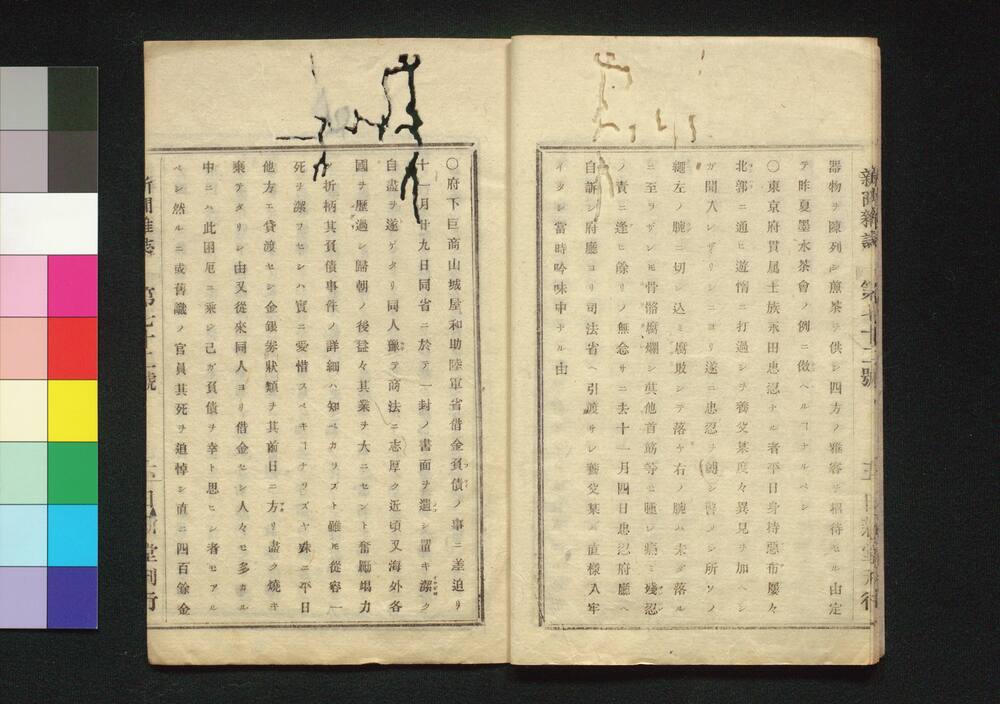 器物ヲ陳列シ煎茶ヲ供シ四方ノ雅客ヲ招待セル由定
テ昨夏墨水茶會ノ例ニ倣ヘルヿナルベシ
〇東京府貫属士族永田忠忍ナル者平日身持惡布屡々
北部ニ通ヒ遊惰ニ打過シヲ養父某度々異見ヲ加ヘシ
ガ聞入レザリシ ヨリ遂ニ忠忍ヲ縛シ 所ソノ
繩左ノ腕ニ切シ込ミ腐敗シテ落ケ右ノ腕ハ未ダ落ル
ニ至ラザレ𪜈骨髂腐爛シ其他首筋等モ腫レ 殘忍
ノ責ニ逢ヒ餘リノ無念サニ去十一月四日忠忍府廳ヘ
自訴シ府廳ヨリ司法省ヘ引渡サレ養父某ハ直樣入牢
イタシ當時吟味中ナル由
新聞雜誌 第七十二號 日新堂刊行
〇府下巨商山城屋和助陸軍省借金負債ノ事ニ差迫リ
十一月廿九日同省ニ於テ一封ノ書面ヲ遺シ置キ潔ク
自盡ヲ遂ゲタリ同人豫テ商法ニ志厚ク近頃又海外各
國ヲ歷過シ歸朝ノ後益々其業ヲ大ニセント奮勵竭力
ノ折柄其負債事件ノ詳細ハ知ベカラズト雖𪜈從容一
死ヲ潔フセシハ實ニ愛惜スベキヿナラズヤ殊ニ平日
他方エ貸渡セシ金銀劵狀類ヲ其前日ニ方リ盡ク燒キ
棄テタリシ由又從來同人ヨリ借金セシ人々モ多カル
中ニハ此困厄ニ乘シ己ガ負債ヲ幸ト思ヒシ者モアル
ベシ然ルニ或舊識ノ官員其死ヲ追悼シ直ニ四百餘金
新聞雜誌 第七十二號 日新堂刊行